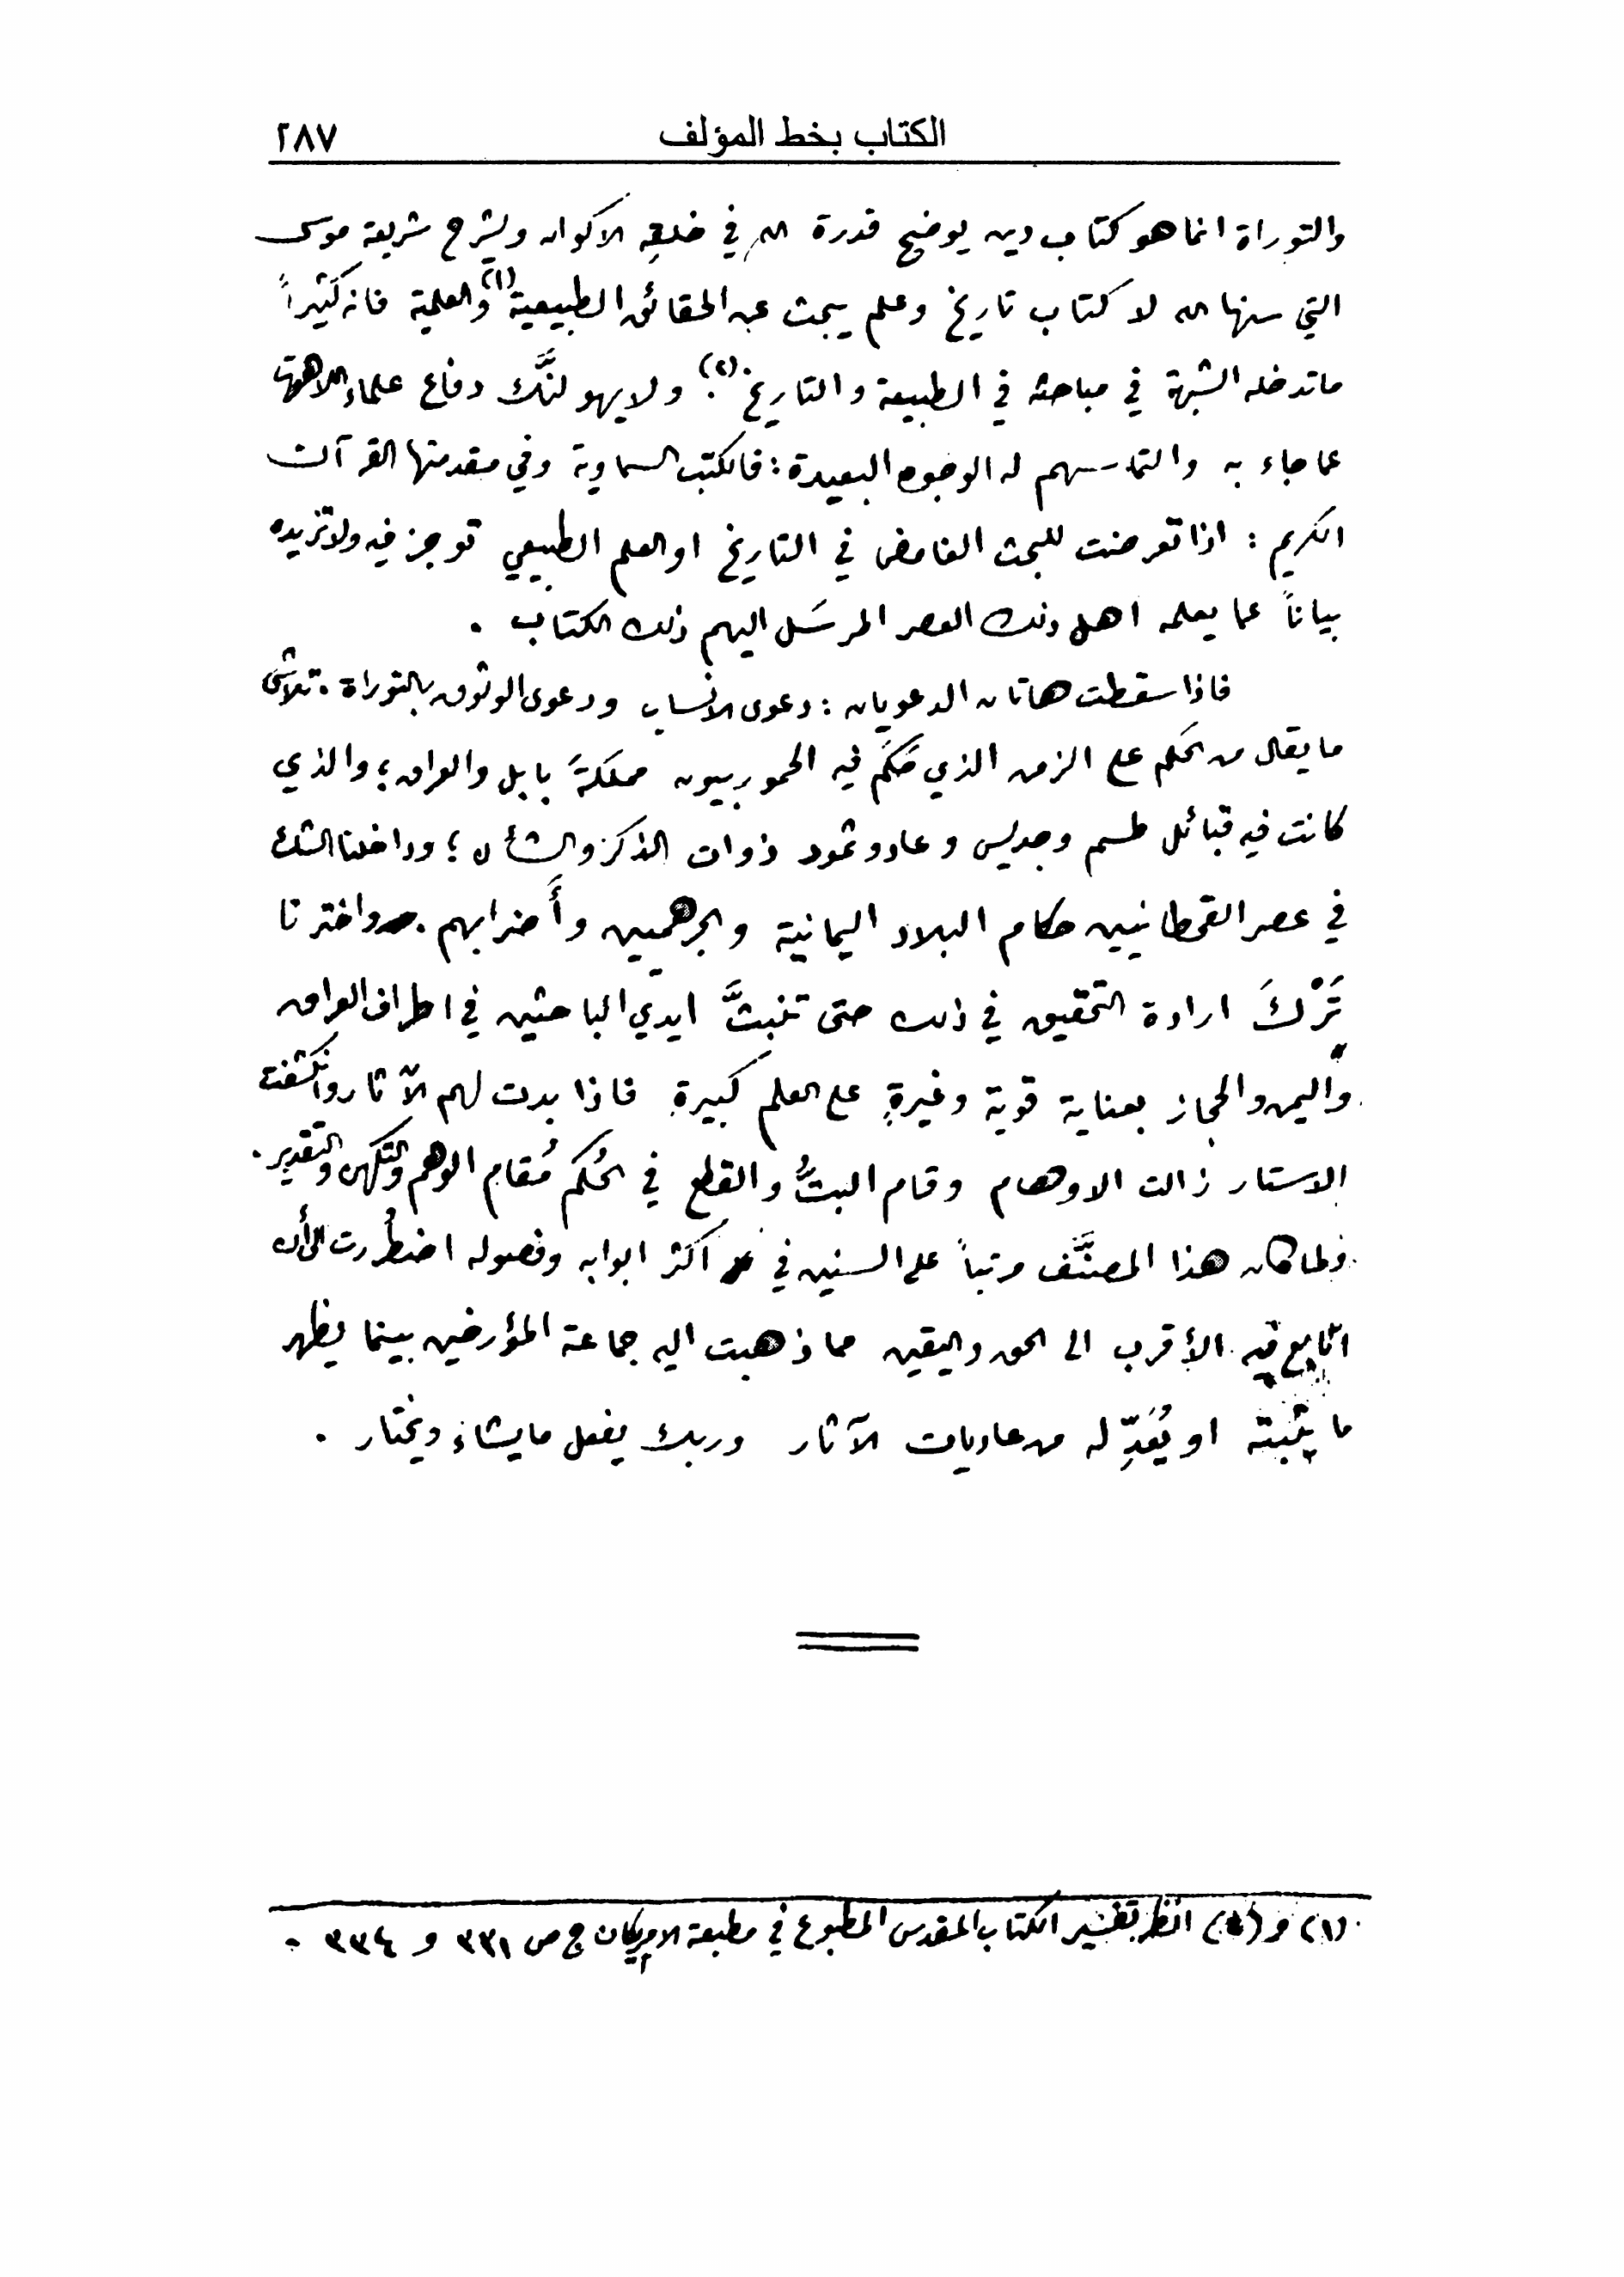 الكتاب بخط المؤلف ٢٨٧
والتوراة انما هو كتاب دين يوضح قدرة الله في خلقه الاكوان ويشرح شريعة موسى
التي سنها الله لا كتاب تاريخ وعلم يبحث عن الحقائق الطبيعية (١) والعلمية فانه كثيراً
ما تدخله الشبهة في مباحثه في الطبيعة والتاريخ (٢). ولا يهولنَّك دفاع علماء اللاهوت
عما جاء به والتماسهم له الوجوه البعيدة : فالكتب السماوية وفي مقدمتها القرآن
الكريم : اذا تعرضت للبحث الغامض في التاريخ او العلم الطبيعي توجز فيه ولا تزيده
بياناً عما يعلمه اهل ذلك العصر المرسَل اليهم ذلك الكتاب .
فاذا سقطت هاتان الدعويان : دعوى الانساب ودعوى الوثوق بالتوراة . تلاشى
ما يقال من الحكم على الزمن الذي حَكَمَ فيه الحموربيون مملكةَ بابل والعراق ؛ والذي
كانت فيه قبائل طسم وجديس وعاد وثمود ذوات الذكر والشأن ؛ وداخلنا الشك
في عصر القحطانيين حكام البلاد اليمانية والجرهميين وأَضرابهم . واخترنا
تَرْكَ ارادة التحقيق في ذلك حتى تنبثَّ ايدي الباحثين في اطراف العراق
واليمن والحجاز بعناية قوية وغيرةٍ على العلم كبيرةٍ فاذا بدت لهم الآثار وانكشفت
الاستار زالت الاوهام وقام البتُّ والقطع في الحُكم مُقام الوهم والتكهن والتقدير .
ولما كان هذا المصنَّف مرتباً على السنين في اكثر ابوابه وفصوله اضطُررت الى أن
اتابع فيه الأقرب الى الحق واليقين مما ذهبت اليه جماعة المؤرخين بينما يظهر
ما يثبته او يُعَدِّله من عاديات الآثار وربك يفعل ما يشاء ويختار .
(١) و (٢) انظر تفسير الكتاب المقدس المطبوع في مطبعة الامريكان ج ١ ص ٣٣١ و ٣٣٤ .